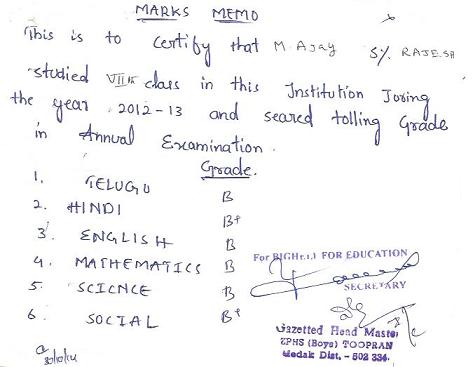 MARKS MEMO
This is to certify that M. Ajay S/o RAJESH
studied VIIth class in this Institution During
the year 2012-13 and seared tolling Grade
in Annual Examination.
Grade.
1. TELUGU B
2. HINDI B+
3. ENGLISH B
4. MATHEMATICS B
5. SCIENCE B
6. SOCIAL B+
For RIGHT FOR EDUCATION
SECRETARY
Gazetted Head Master
ZPHS (Boys) TOOPRAN
Medak Dist. - 502 334.